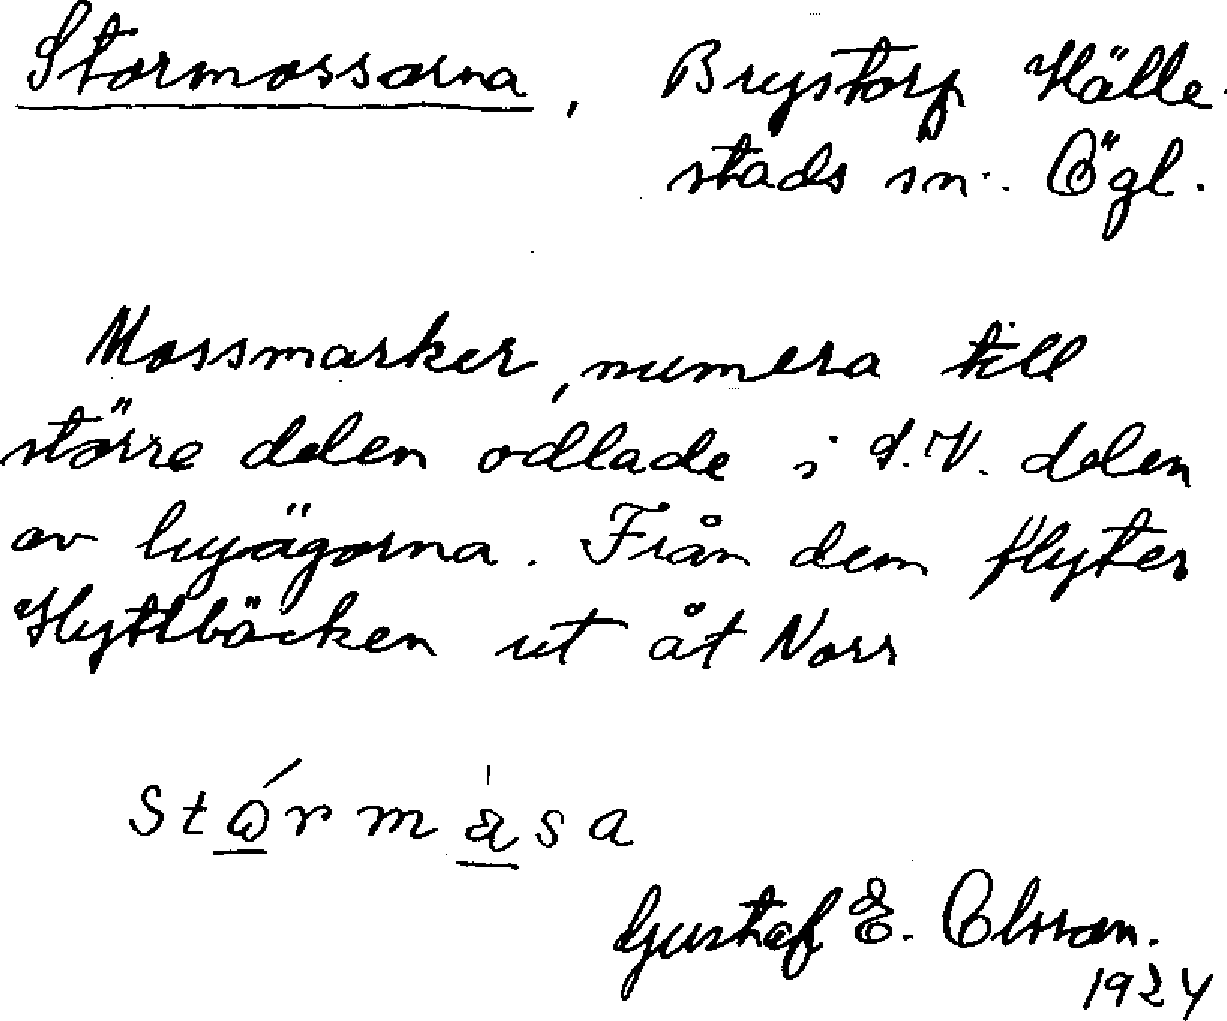 Stormossarna, Brystorp Hälle-
stads sn. Ögl.
Mossmarker, numera till
större delen odlade i S.V. delen
av byägorna. Från dem flyter
Hyttbäcken ut åt Norr
Gustaf E. Olsson.
1924